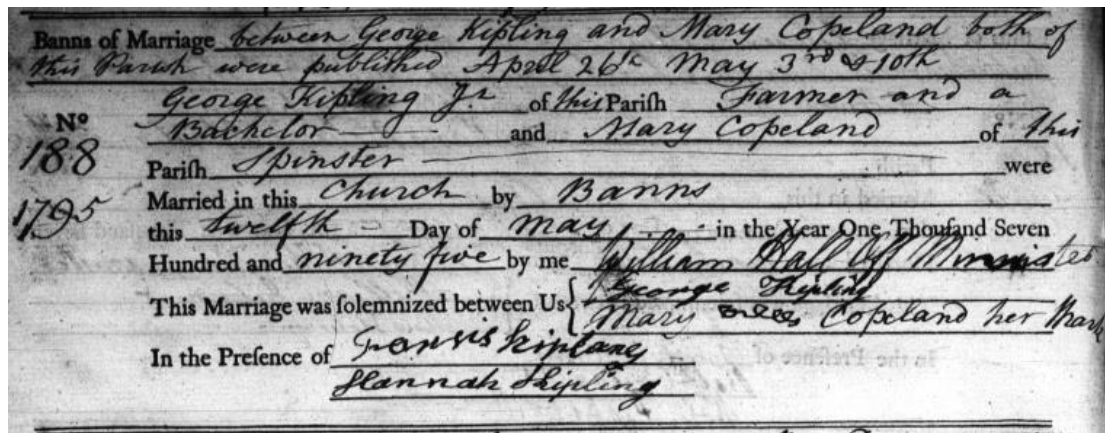 Banns of Marriage between George Kipling and Mary Copeland both of
this Parish were published April 26th May 3rd & 10th
George Kipling Jr of this Pariſh Farmer and a
No 188 Bachelor and Mary Copeland of this
Pariſh Spinster were
1795 Married in this Church by Banns
this twelfth Day of May in the Year One Thouſand Seven
Hundred and ninety five by me William Hall Off Minister
This Marriage was ſolemnized between Us George Kipling
Mary Copeland her Mark
In the Preſence of Fransis Kipling
Hannah Kipling